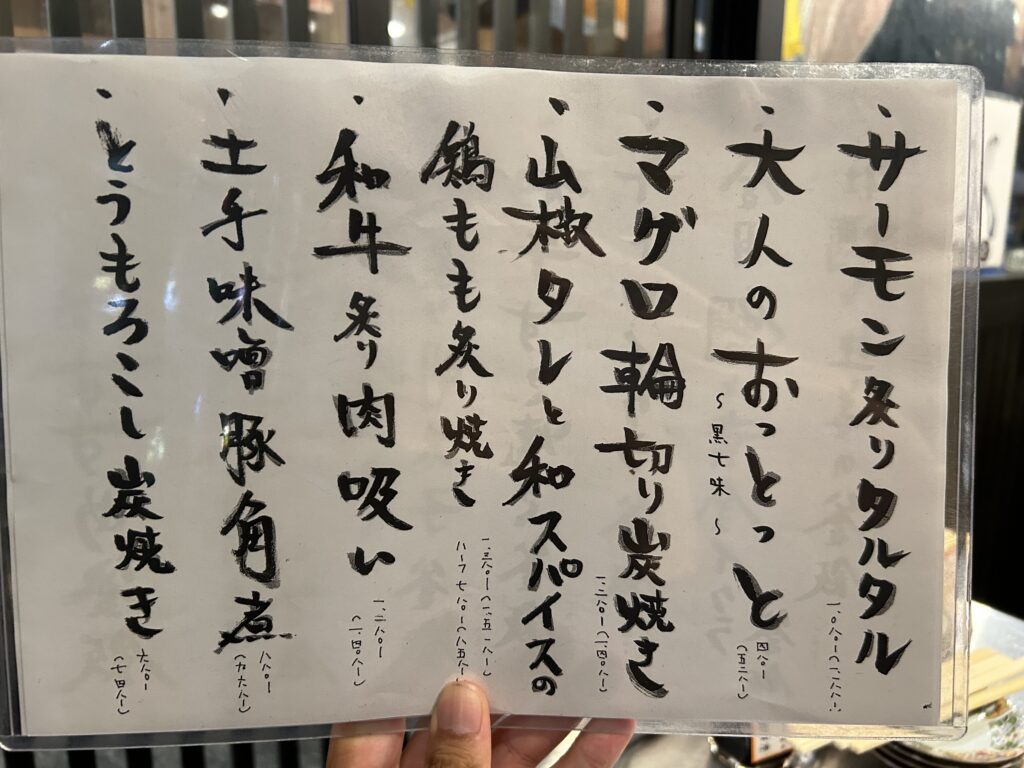 ・サーモン炙りタルタル
一、〇八〇ー(一、一八八ー)
・大人のおっとっと
〜黒七味〜
四八〇ー
(五二八ー)
・マグロ輪切り炭焼き
一、二八〇ー(一、四〇八ー)
・山椒タレと和スパイスの
鶏もも炙り焼き
一、三八〇ー(一、五一八ー)
ハーフ 七八〇ー(八五八ー)
・和牛炙り肉吸い
一、二八〇ー
(一、四〇八ー)
・土手味噌豚角煮
八八〇ー
(九六八ー)
・とうもろこし炭焼き
六八〇ー
(七四八ー)